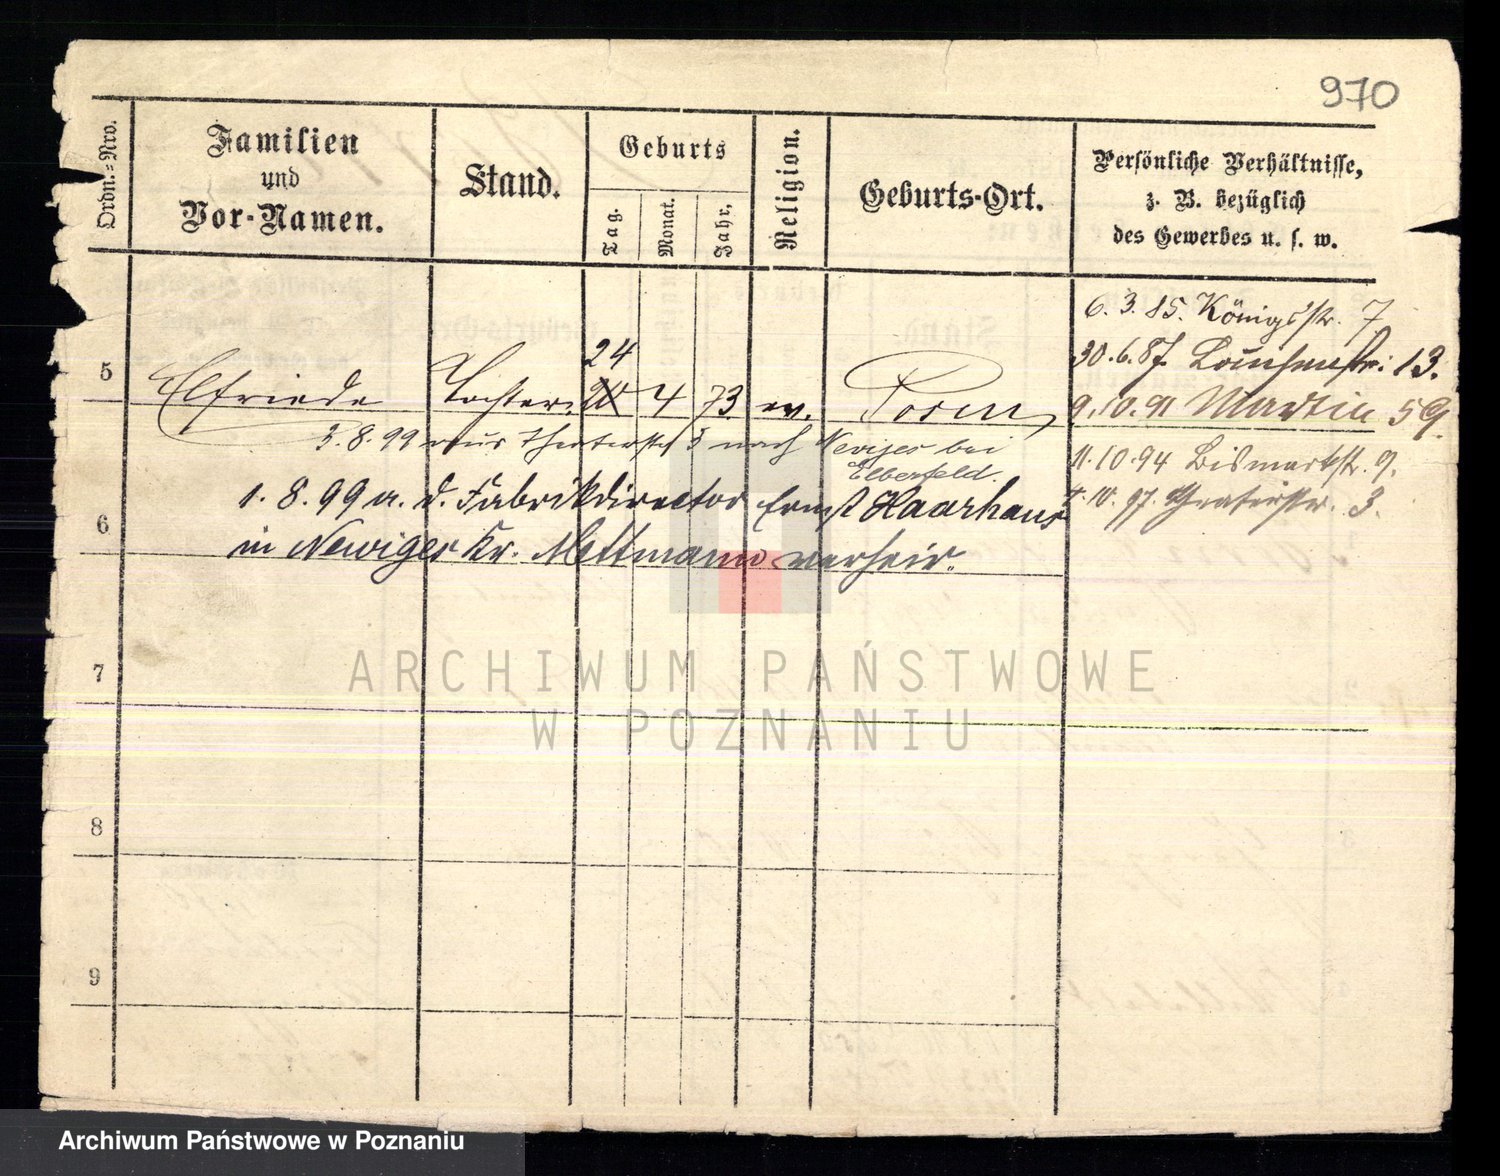 970
Ordn.-Nro.
Familien
und
Vor-Namen.
Stand.
Geburts
Tag.
Monat.
Jahr,
Religion.
Geburts-Ort.
Persönliche Verhältnisse,
z. B. bezüglich
des Gewerbes u. s. w.
6. 3. 85. Königsstr. 7
24
30. 6. 87. Louisenstr. 13.
5 Elfriede Tochter 20 4 73. ev. Posen
9. 10. 91 Martin 59.
3. 8. 99 aus Theaterstr 3 nach Neviges bei
Elberfeld.
11. 10. 94 Bismarkstr. 9.
1. 8. 99 a. d. Fabrikdirector Ernst Haarhaus
10. 97. Theaterstr. 3.
6
in Newiges Kr. Mettmann verheir.
7
8
9
ARCHIWUM PAŃSTWOWE
W POZNANIU
Archiwum Państwowe w Poznaniu